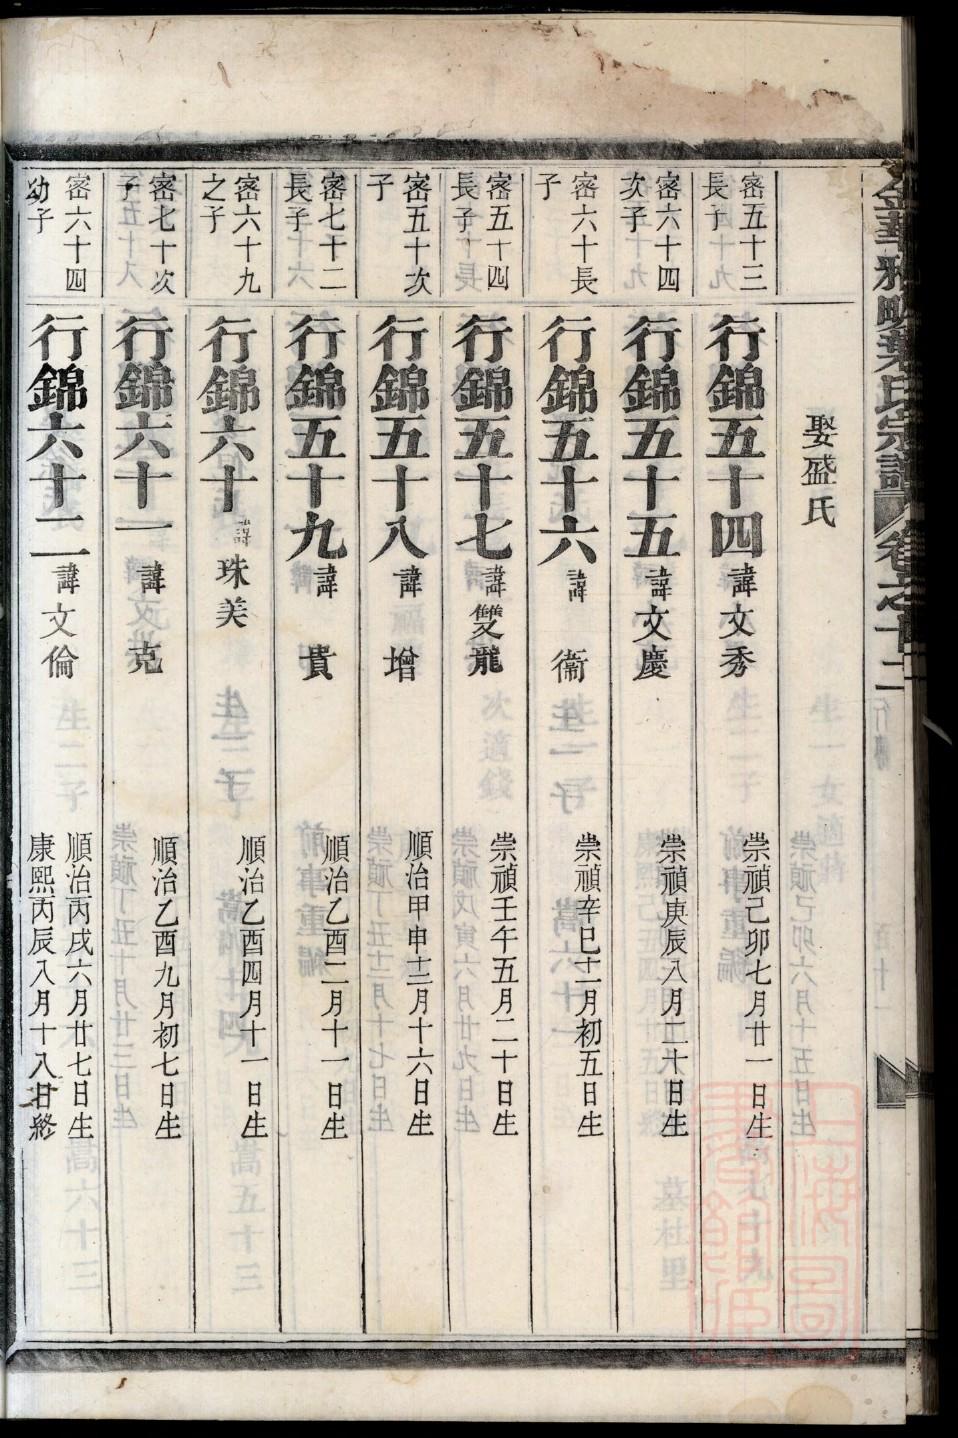 娶盛氏
密五十三
長子
行錦五十四 諱文秀 崇禎己卯七月廿一日生
密六十四
次子
行錦五十五 諱文慶 崇禎庚辰八月二十日生
密六十長
子
行錦五十六 諱衞 崇禎辛巳十一月初五日生
密五十四
長子
行錦五十七 諱雙龍 崇禎壬午五月二十日生
密五十次
子
行錦五十八 諱增 順治甲申十二月十六日生
密七十二
長子
行錦五十九 諱貴 順治乙酉二月十一日生
密六十九
之子
行錦六十 諱珠美 順治乙酉四月十一日生
密七十次
子
行錦六十一 諱克 順治乙酉九月初七日生
密六十四
幼子
行錦六十二 諱文倫 順治丙戌六月廿七日生
康熙丙辰八月十八日終